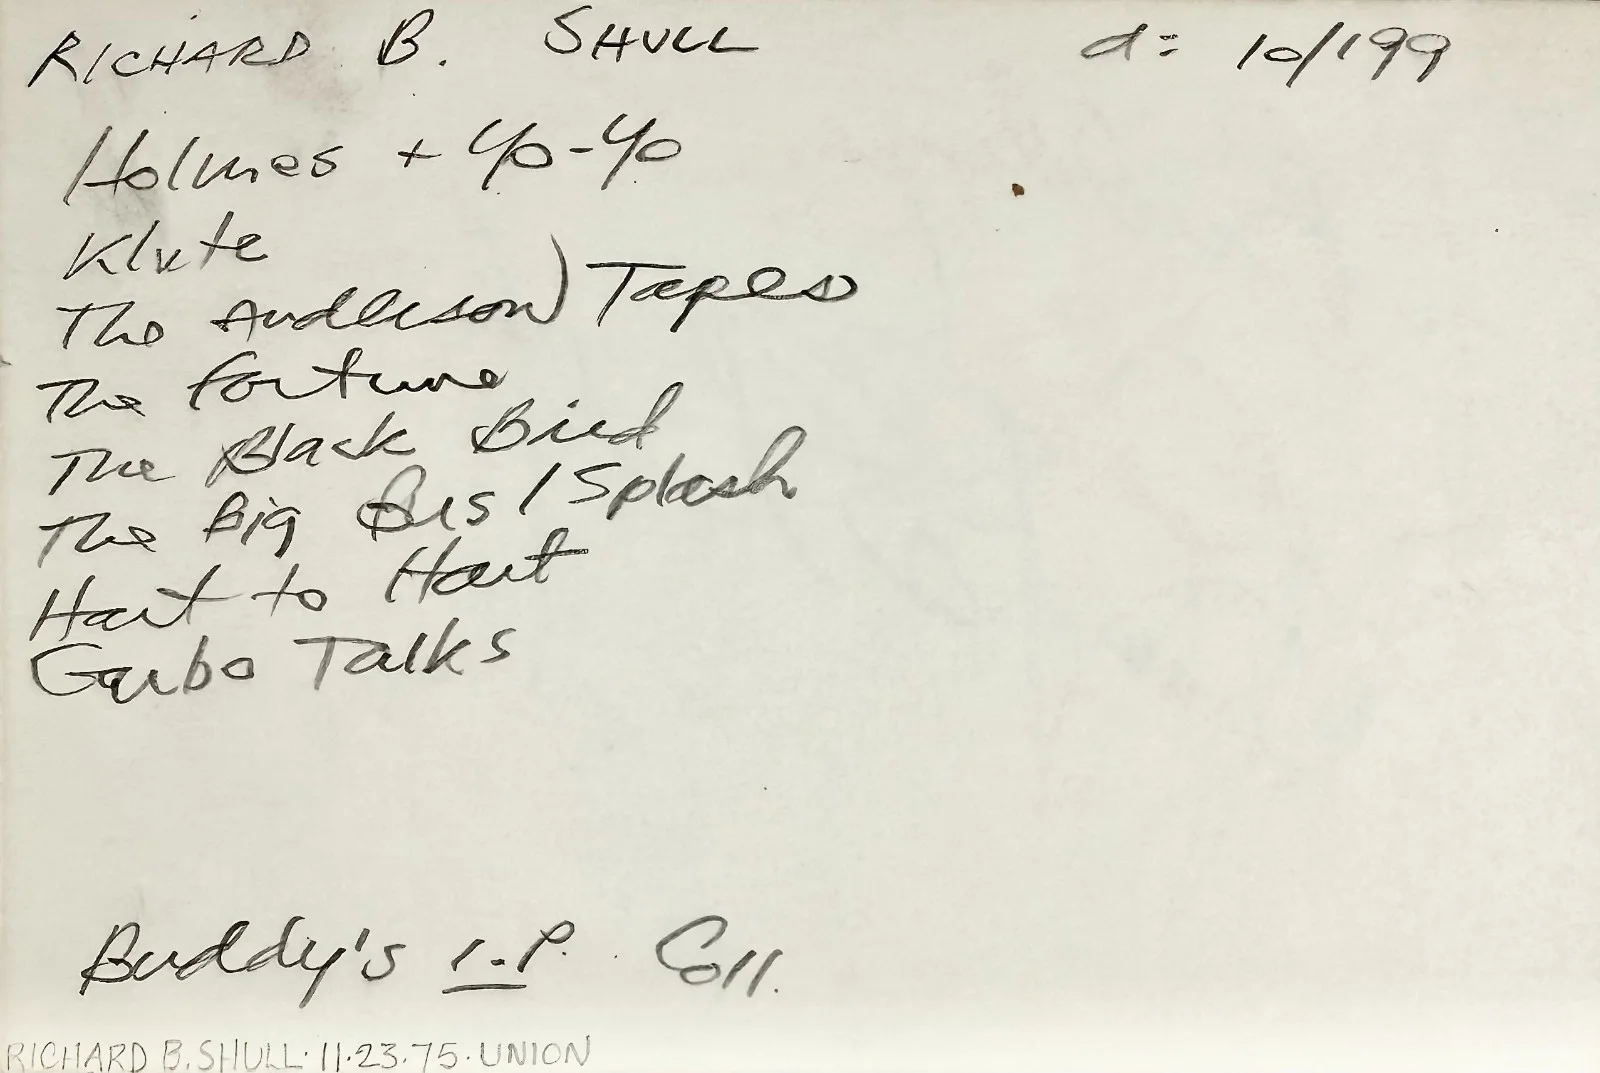 RICHARD B. SHULL d: 10/199
Holmes + Yo-Yo
Klute
The Anderson) Tapes
The Fortune
The Black Bird
The Big Bus / Splash
Hart to Hart
Garbo Talks
Buddy's I.P. Coll.
RICHARD B. SHULL · 11·23·75 · UNION